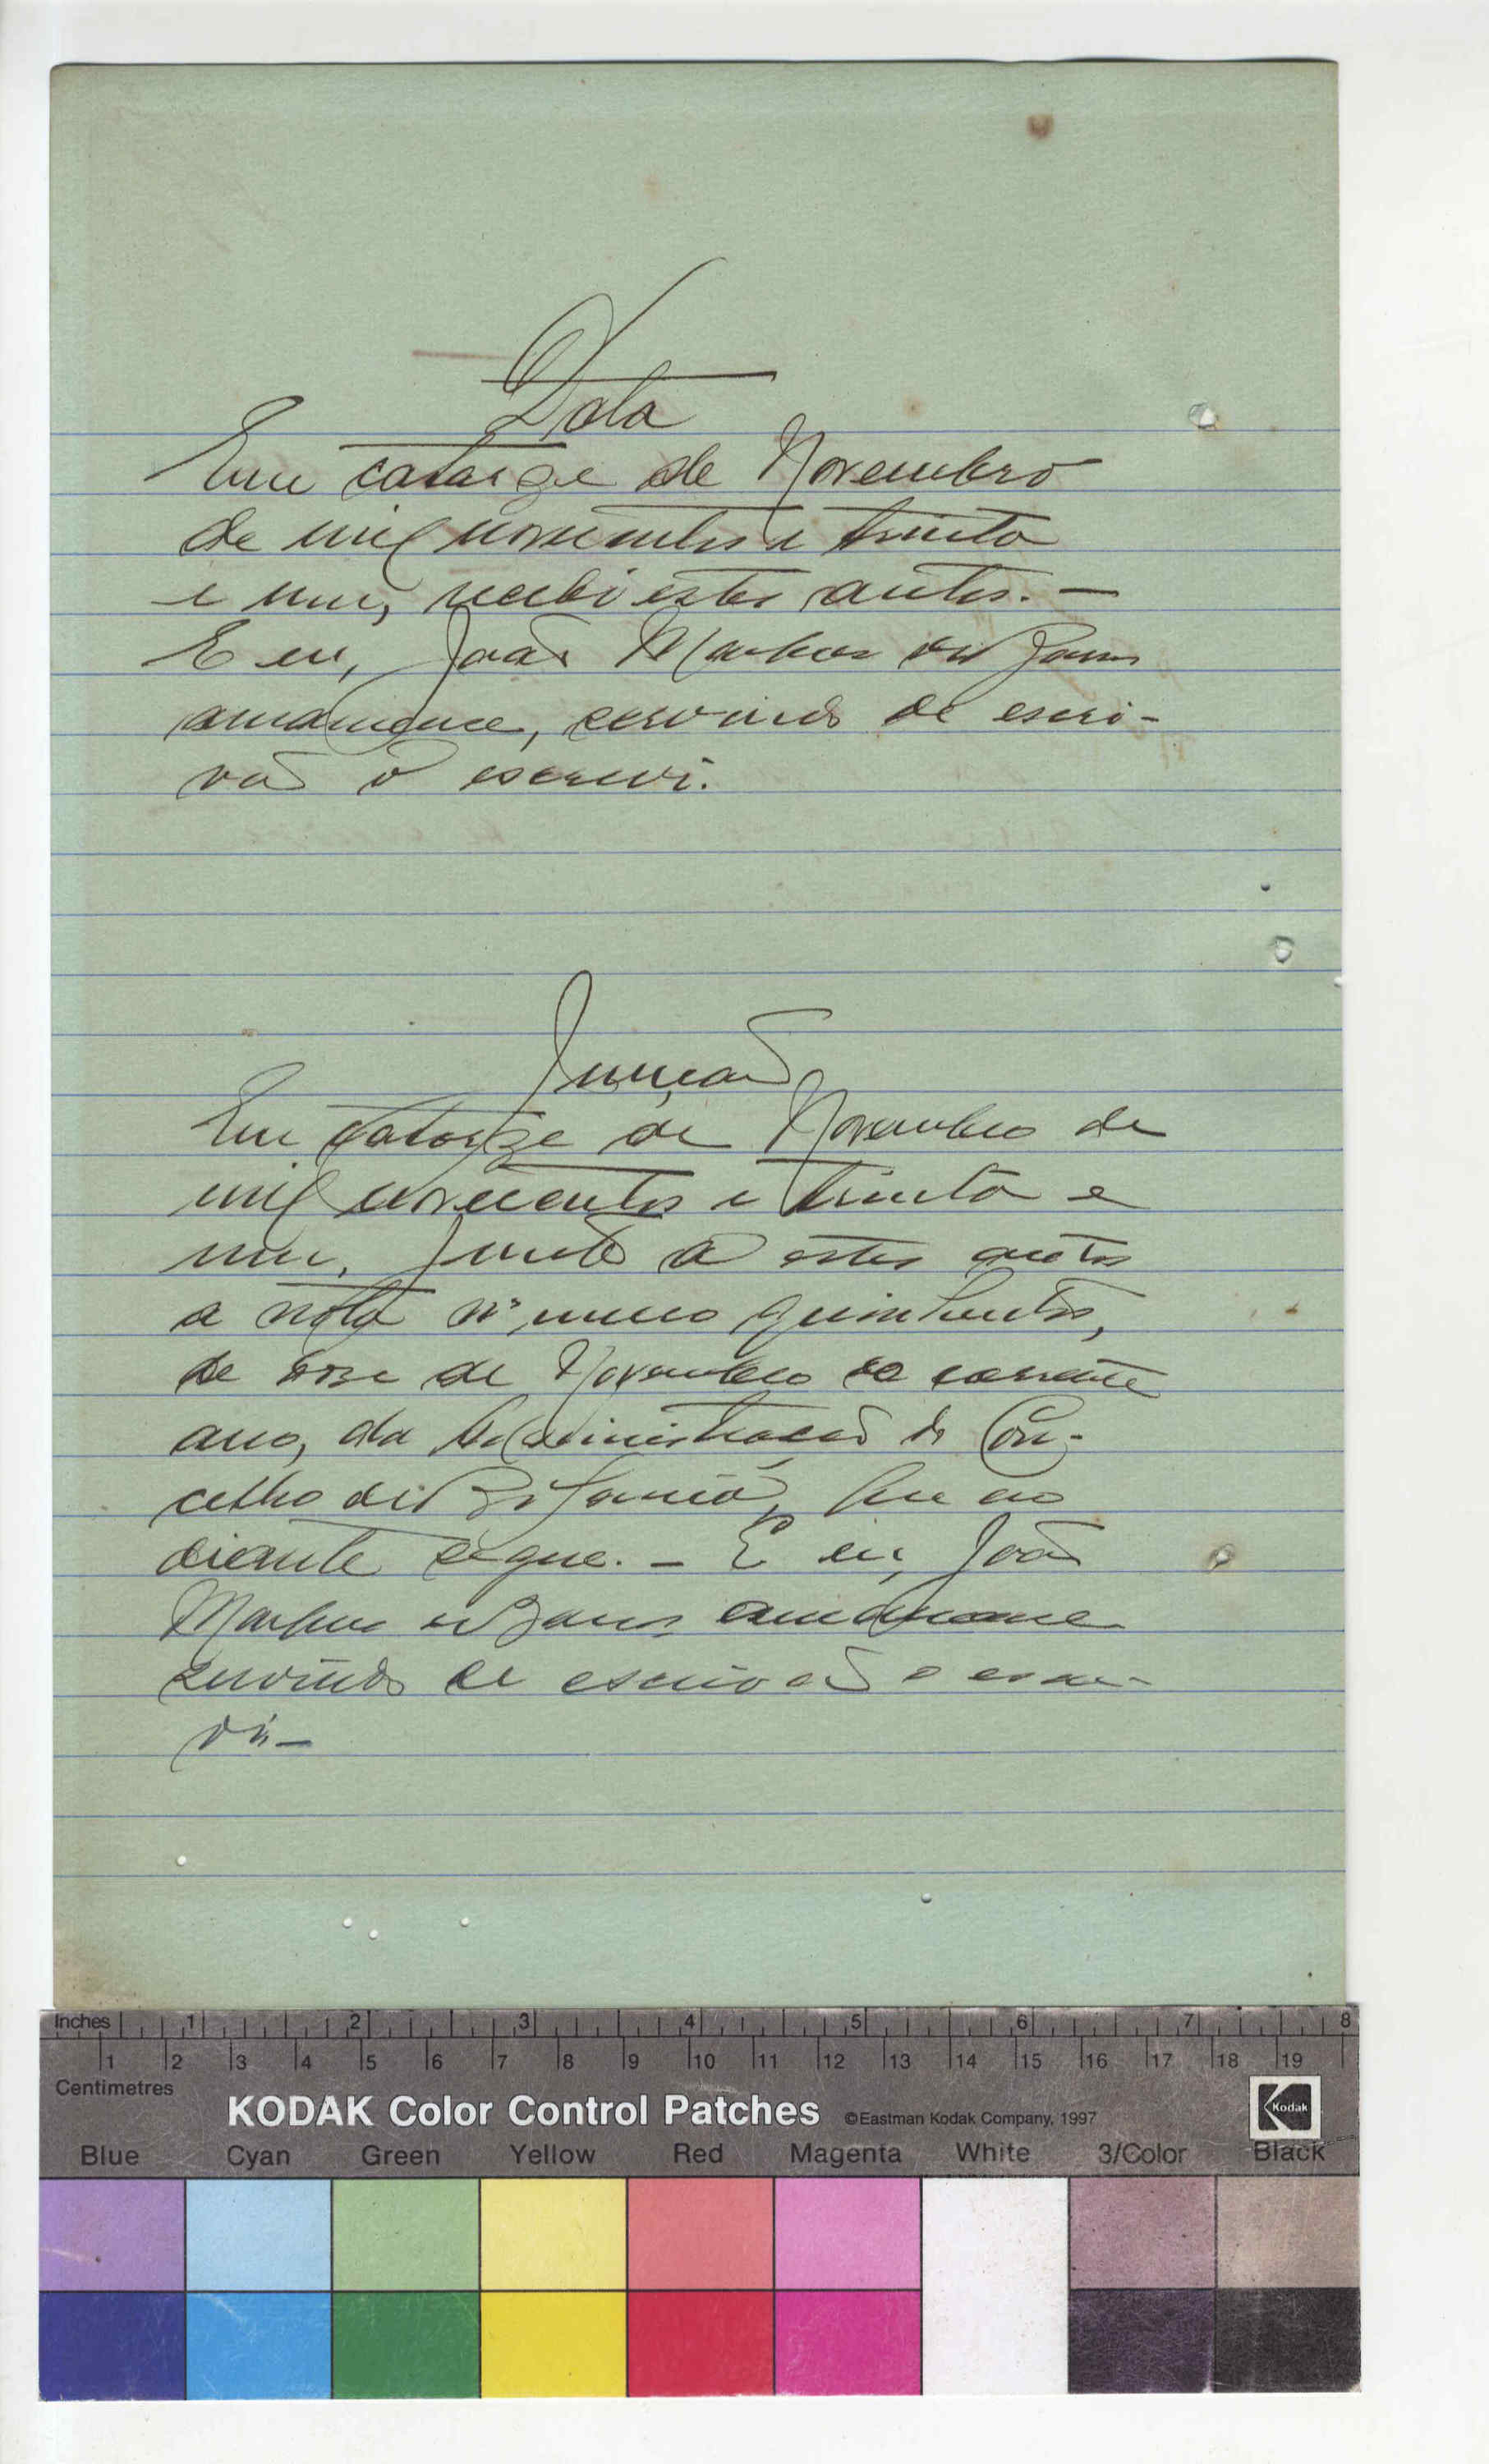 Data
Em catorze de Novembro
de mil novecentos e trinta
e um, recebi estes autos. —
E eu, João Markus
amanuense, servindo de escri-
vão o escrevi.
Junção
Em catorze de Novembro de
mil novecentos e trinta e
um, junto a estes autos
a nota numero quinhentos,
de doze de Novembro do corrente
ano, da Administração do Con-
celho de que ao
diante segue. — E eu, João
Markus amanuense
servindo de escrivão o escre-
vi —
Inches 1 2 3 4 5 6 7 8
1 2 3 4 5 6 7 8 9 10 11 12 13 14 15 16 17 18 19
Centimetres
KODAK Color Control Patches ©Eastman Kodak Company, 1997 Kodak
Blue Cyan Green Yellow Red Magenta White 3/Color Black